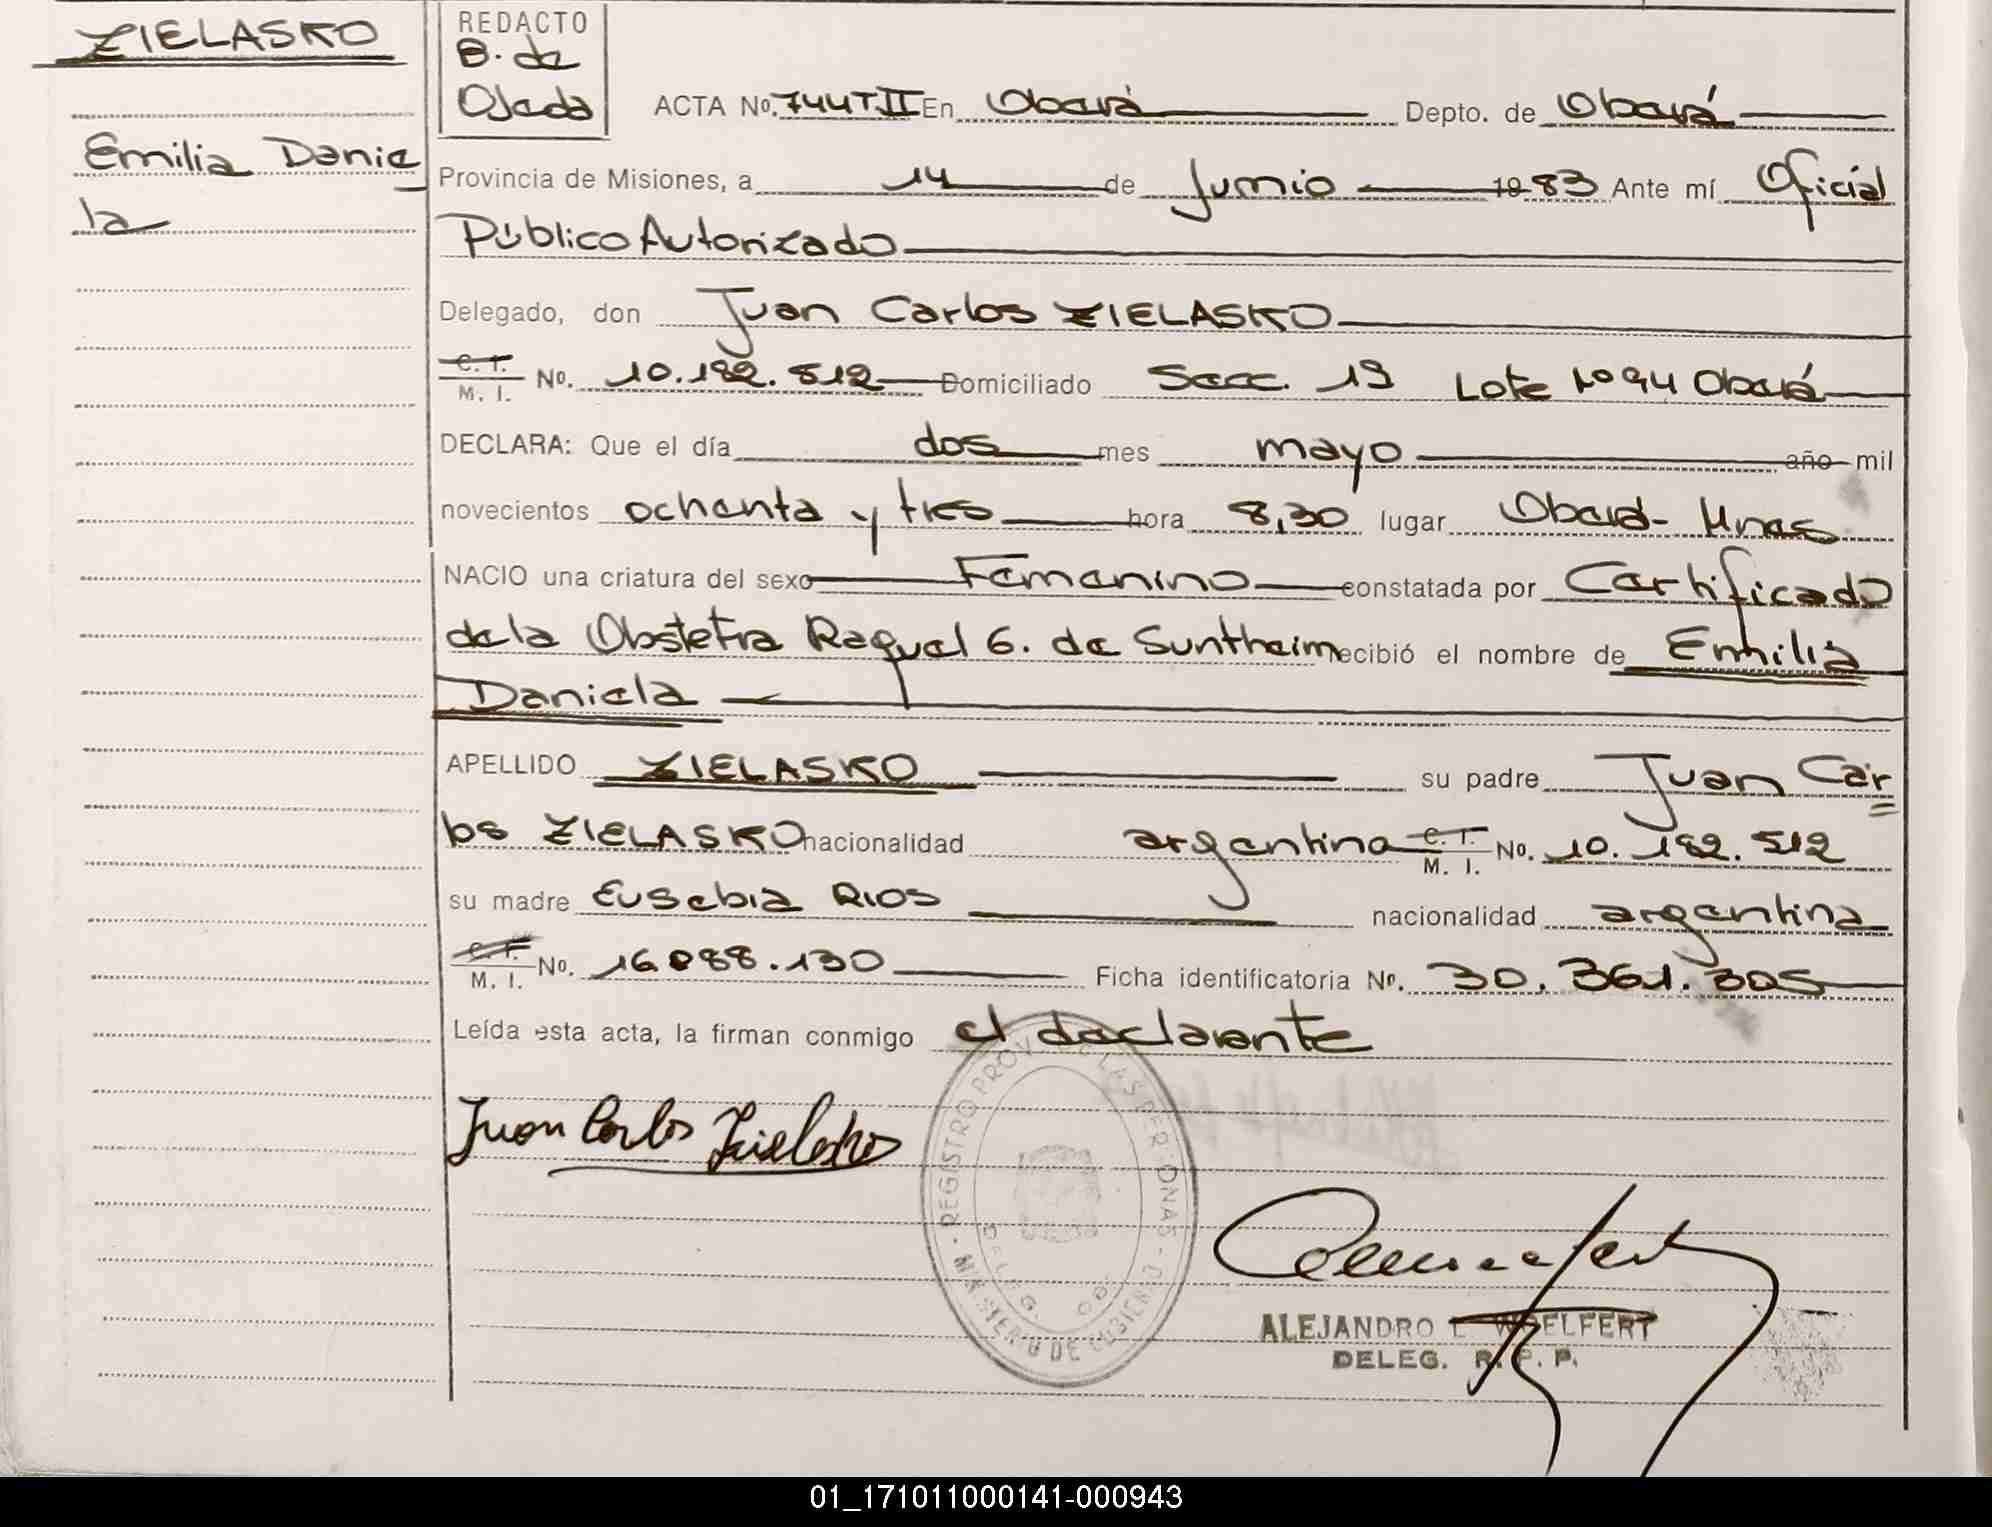 ZIELASKO
Emilia Danie
la
REDACTO
B. de
Ojeda
ACTA No. 744TII En Oberá Depto. de Oberá
Provincia de Misiones, a 14 de Junio 1983 Ante mí Oficial
Público Autorizado
Delegado, don Juan Carlos ZIELASKO
C. I.
M. I. No. 10.182.512 Domiciliado Secc. 19 Lote No 94 Oberá
DECLARA: Que el día dos mes mayo año mil
novecientos ochenta y tres hora 8,30 lugar Oberá- Mnes
NACIO una criatura del sexo Femenino constatada por Certificado
de la Obstetra Raquel G. de Suntheim recibió el nombre de Emilia
Daniela
APELLIDO ZIELASKO su padre Juan Car
los ZIELASKO nacionalidad argentina C. I.
M. I. No. 10.182.512
su madre Eusebia RIOS nacionalidad argentina
C. I.
M. I. No. 16.088.130 Ficha identificatoria No. 30.361.305
Leída esta acta, la firman conmigo el declarante
Juan Carlos Zielasko
REGISTRO PROVINCIAL DE LAS PERSONAS - MINISTERIO DE GOBIERNO
ALEJANDRO L. WOELFERT
DELEG. R. P. P.
01_171011000141-000943